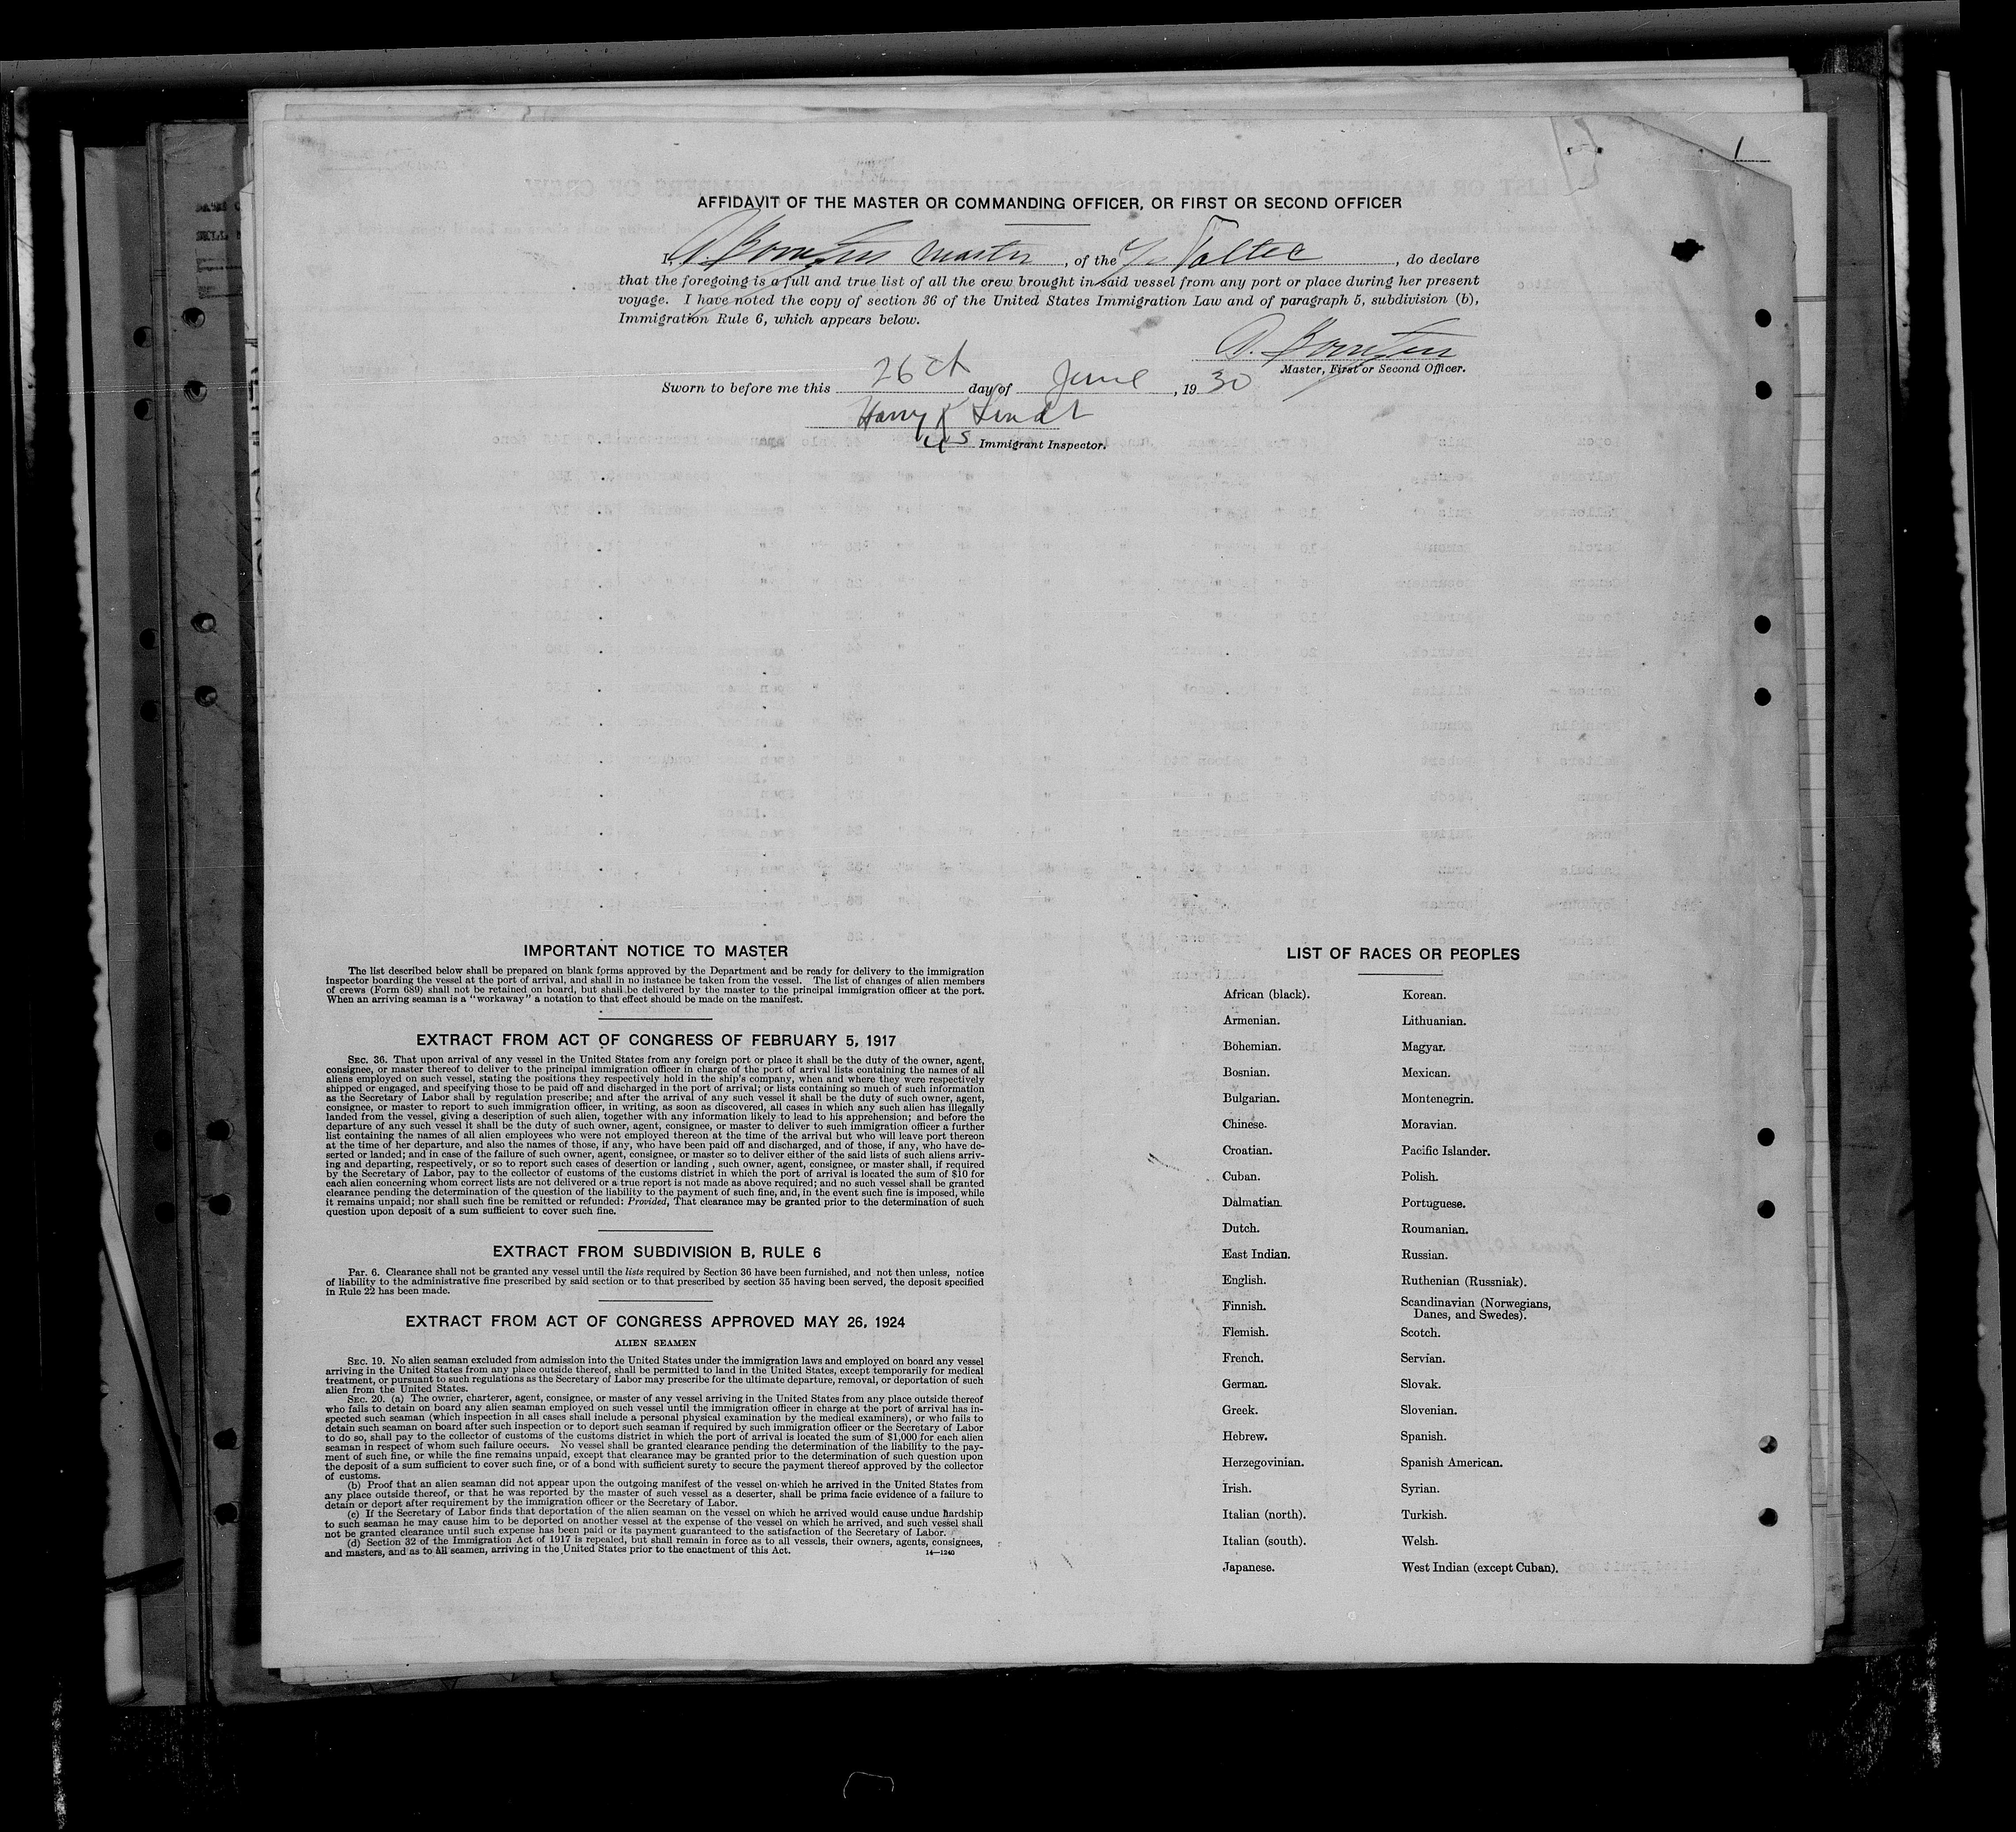 1
AFFIDAVIT OF THE MASTER OR COMMANDING OFFICER, OR FIRST OR SECOND OFFICER
I, A. master, of the Toltec, do declare
that the foregoing is a full and true list of all the crew brought in said vessel from any port or place during her present
voyage. I have noted the copy of section 36 of the United States Immigration Law and of paragraph 5, subdivision (b),
Immigration Rule 6, which appears below.
A.
Master, First or Second Officer.
Sworn to before me this 26th day of June, 1930
Harry K
US Immigrant Inspector.
IMPORTANT NOTICE TO MASTER
The list described below shall be prepared on blank forms approved by the Department and be ready for delivery to the immigration
inspector boarding the vessel at the port of arrival, and shall in no instance be taken from the vessel. The list of changes of alien members
of crews (Form 689) shall not be retained on board, but shall be delivered by the master to the principal immigration officer at the port.
When an arriving seaman is a "workaway" a notation to that effect should be made on the manifest.
EXTRACT FROM ACT OF CONGRESS OF FEBRUARY 5, 1917
SEC. 36. That upon arrival of any vessel in the United States from any foreign port or place it shall be the duty of the owner, agent,
consignee, or master thereof to deliver to the principal immigration officer in charge of the port of arrival lists containing the names of all
aliens employed on such vessel, stating the positions they respectively hold in the ship's company, when and where they were respectively
shipped or engaged, and specifying those to be paid off and discharged in the port of arrival; or lists containing so much of such information
as the Secretary of Labor shall by regulation prescribe; and after the arrival of any such vessel it shall be the duty of such owner, agent,
consignee, or master to report to such immigration officer, in writing, as soon as discovered, all cases in which any such alien has illegally
landed from the vessel, giving a description of such alien, together with any information likely to lead to his apprehension; and before the
departure of any such vessel it shall be the duty of such owner, agent, consignee, or master to deliver to such immigration officer a further
list containing the names of all alien employees who were not employed thereon at the time of the arrival but who will leave port thereon
at the time of her departure, and also the names of those, if any, who have been paid off and discharged, and of those, if any, who have de-
serted or landed; and in case of the failure of such owner, agent, consignee, or master so to deliver either of the said lists of such aliens arriv-
ing and departing, respectively, or so to report such cases of desertion or landing, such owner, agent, consignee, or master shall, if required
by the Secretary of Labor, pay to the collector of customs of the customs district in which the port of arrival is located the sum of $10 for
each alien concerning whom correct lists are not delivered or a true report is not made as above required; and no such vessel shall be granted
clearance pending the determination of the question of the liability to the payment of such fine, and, in the event such fine is imposed, while
it remains unpaid; nor shall such fine be remitted or refunded: Provided, That clearance may be granted prior to the determination of such
question upon deposit of a sum sufficient to cover such fine.
EXTRACT FROM SUBDIVISION B, RULE 6
Par. 6. Clearance shall not be granted any vessel until the lists required by Section 36 have been furnished, and not then unless, notice
of liability to the administrative fine prescribed by said section or to that prescribed by section 35 having been served, the deposit specified
in Rule 22 has been made.
EXTRACT FROM ACT OF CONGRESS APPROVED MAY 26, 1924
ALIEN SEAMEN
SEC. 19. No alien seaman excluded from admission into the United States under the immigration laws and employed on board any vessel
arriving in the United States from any place outside thereof, shall be permitted to land in the United States, except temporarily for medical
treatment, or pursuant to such regulations as the Secretary of Labor may prescribe for the ultimate departure, removal, or deportation of such
alien from the United States.
SEC. 20. (a) The owner, charterer, agent, consignee, or master of any vessel arriving in the United States from any place outside thereof
who fails to detain on board any alien seaman employed on such vessel until the immigration officer in charge at the port of arrival has in-
spected such seaman (which inspection in all cases shall include a personal physical examination by the medical examiners), or who fails to
detain such seaman on board after such inspection or to deport such seaman if required by such immigration officer or the Secretary of Labor
to do so, shall pay to the collector of customs of the customs district in which the port of arrival is located the sum of $1,000 for each alien
seaman in respect of whom such failure occurs. No vessel shall be granted clearance pending the determination of the liability to the pay-
ment of such fine, or while the fine remains unpaid, except that clearance may be granted prior to the determination of such question upon
the deposit of a sum sufficient to cover such fine, or of a bond with sufficient surety to secure the payment thereof approved by the collector
of customs.
(b) Proof that an alien seaman did not appear upon the outgoing manifest of the vessel on which he arrived in the United States from
any place outside thereof, or that he was reported by the master of such vessel as a deserter, shall be prima facie evidence of a failure to
detain or deport after requirement by the immigration officer or the Secretary of Labor.
(c) If the Secretary of Labor finds that deportation of the alien seaman on the vessel on which he arrived would cause undue hardship
to such seaman he may cause him to be deported on another vessel at the expense of the vessel on which he arrived, and such vessel shall
not be granted clearance until such expense has been paid or its payment guaranteed to the satisfaction of the Secretary of Labor.
(d) Section 32 of the Immigration Act of 1917 is repealed, but shall remain in force as to all vessels, their owners, agents, consignees,
and masters, and as to all seamen, arriving in the United States prior to the enactment of this Act.
14—1240
LIST OF RACES OR PEOPLES
African (black).
Armenian.
Bohemian.
Bosnian.
Bulgarian.
Chinese.
Croatian.
Cuban.
Dalmatian.
Dutch.
East Indian.
English.
Finnish.
Flemish.
French.
German.
Greek.
Hebrew.
Herzegovinian.
Irish.
Italian (north).
Italian (south).
Japanese.
Korean.
Lithuanian.
Magyar.
Mexican.
Montenegrin.
Moravian.
Pacific Islander.
Polish.
Portuguese.
Roumanian.
Russian.
Ruthenian (Russniak).
Scandinavian (Norwegians,
Danes, and Swedes).
Scotch.
Servian.
Slovak.
Slovenian.
Spanish.
Spanish American.
Syrian.
Turkish.
Welsh.
West Indian (except Cuban).